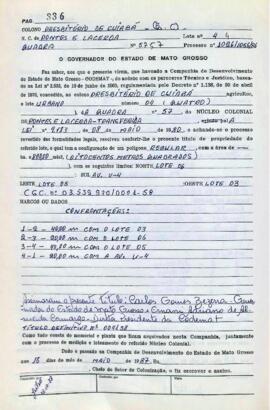 Pag. 336
COLONO PRESBITÉRIO DE CUIABÁ
N. C. de PONTES E LACERDA Lote n.o 4
QUADRA Nº 57 Processo n.o
O GOVERNADOR DO ESTADO DE MATO GROSSO
Faz saber, aos que o presente virem, que havendo a Companhia de Desenvolvimento
do Estado de Mato Grosso - CODEMAT -, de acôrdo com os pareceres Técnico e Jurídico, baseados
de 1970, concedido, ao colono PRESBITÉRIO DE CUIABÁ agricultor,
o lote URBANO número 04 (QUATRO)
DA QUADRA Nº 57 DO NÚCLEO COLONIAL
DE PONTES E LACERDA-
LEI DE MAIO DE e achando-se o processo
revestido das formalidades legais, resolveu conferir-lhe o presente título de propriedade
do referido lote, o qual tem a configuração de um polígono REGULAR com a área de
(OITOCENTOS METROS QUADRADOS)
com os seguintes limites: NORTE LOTE 06
SUL AV. V-4
LESTE LOTE 05 OESTE LOTE 03
C.G.C. 03.539.930/0001-58
MARCOS OU DADOS
CONFRONTAÇÕES:
1-2 - 40,00 m COM O LOTE 03
2-3 - 20,00 m COM O LOTE 06
3-4 - 40,00 m COM O LOTE 05
4-1 - 20,00 m COM A AV. V-4
Assinaram o presente Título: Carlos Gomes Bezerra - Governador
do Estado de Mato Grosso e
Camargo - Diretor Presidente da Codemat
TÍTULO DEFINITIVO Nº
Como tudo consta do memorial e planta que ficam arquivados nesta Companhia, juntamente
com o processo de medição e loteamento do referido Núcleo Colonial.
Dado e passado na Companhia de Desenvolvimento do Estado de Mato Grosso
aos 18 dias do mês de MAIO de 1987. Eu
Chefe do Setor de Colonização, o fiz escrever e assino.